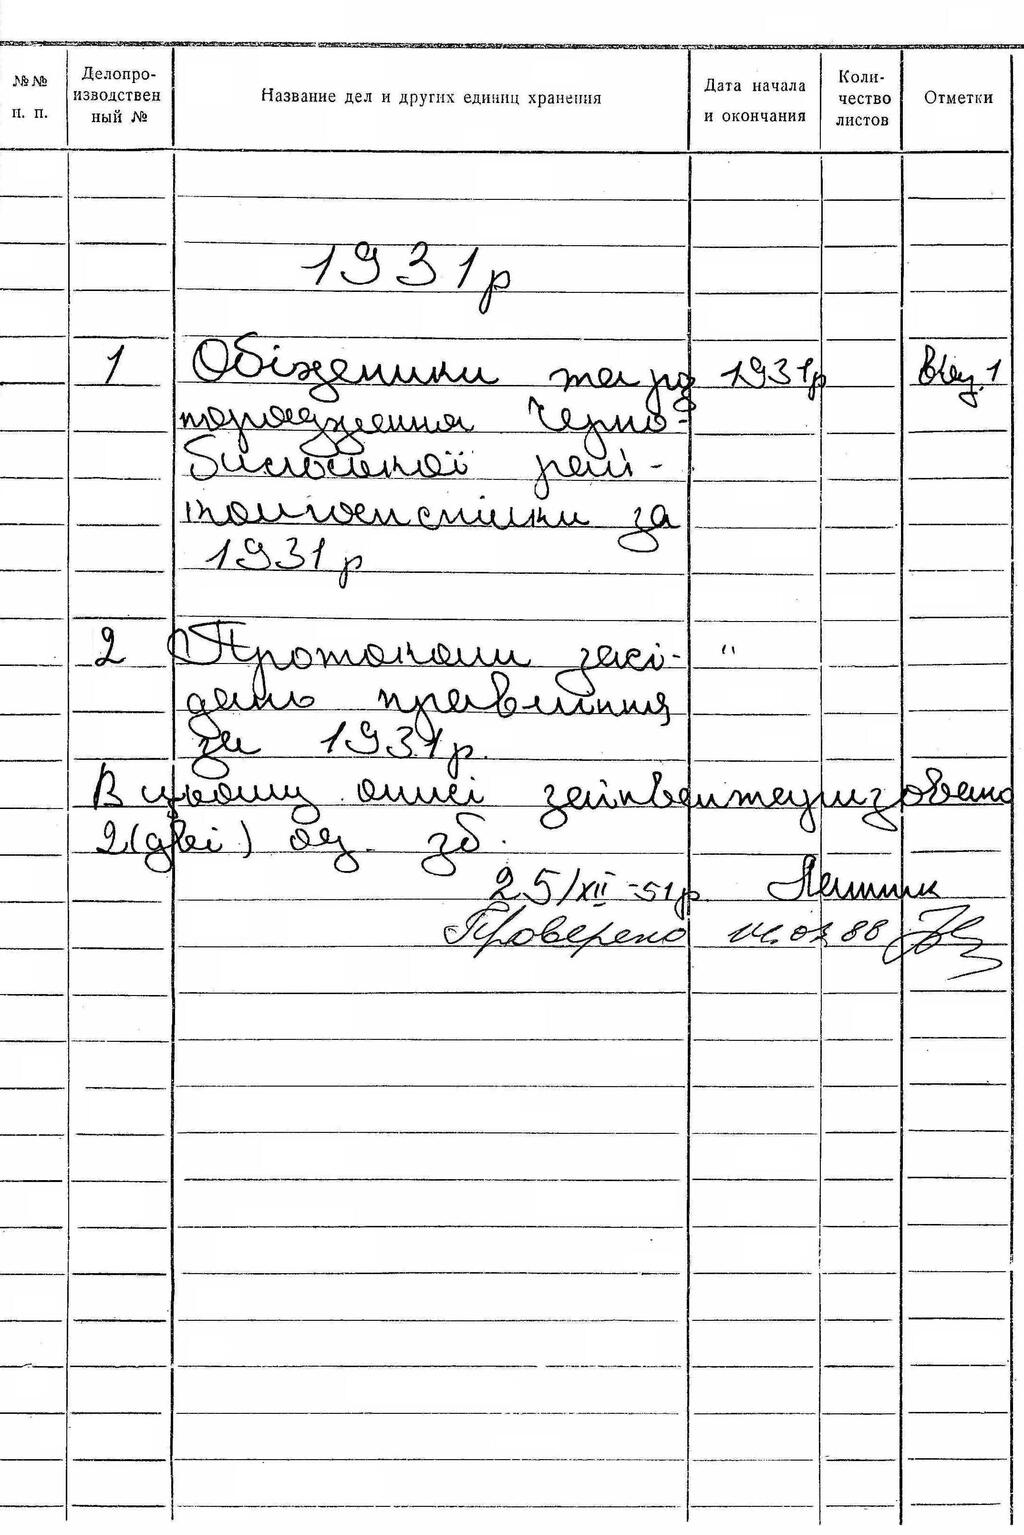 №№ п. п. Делопро-изводствен ный № Название дел и других единиц хранения Дата начала и окончания Коли-чество листов Отметки
1931р
1 Обіжники та роз 1931р
порядження Чорно-
бильської рай-
колгоспспілки за
1931р
2 Протоколи засі- "
дань правління
за 1931р.
В цьому описі заінвентаризовано
2(дві) од. зб.
25/XII-51р.
Проверено 88